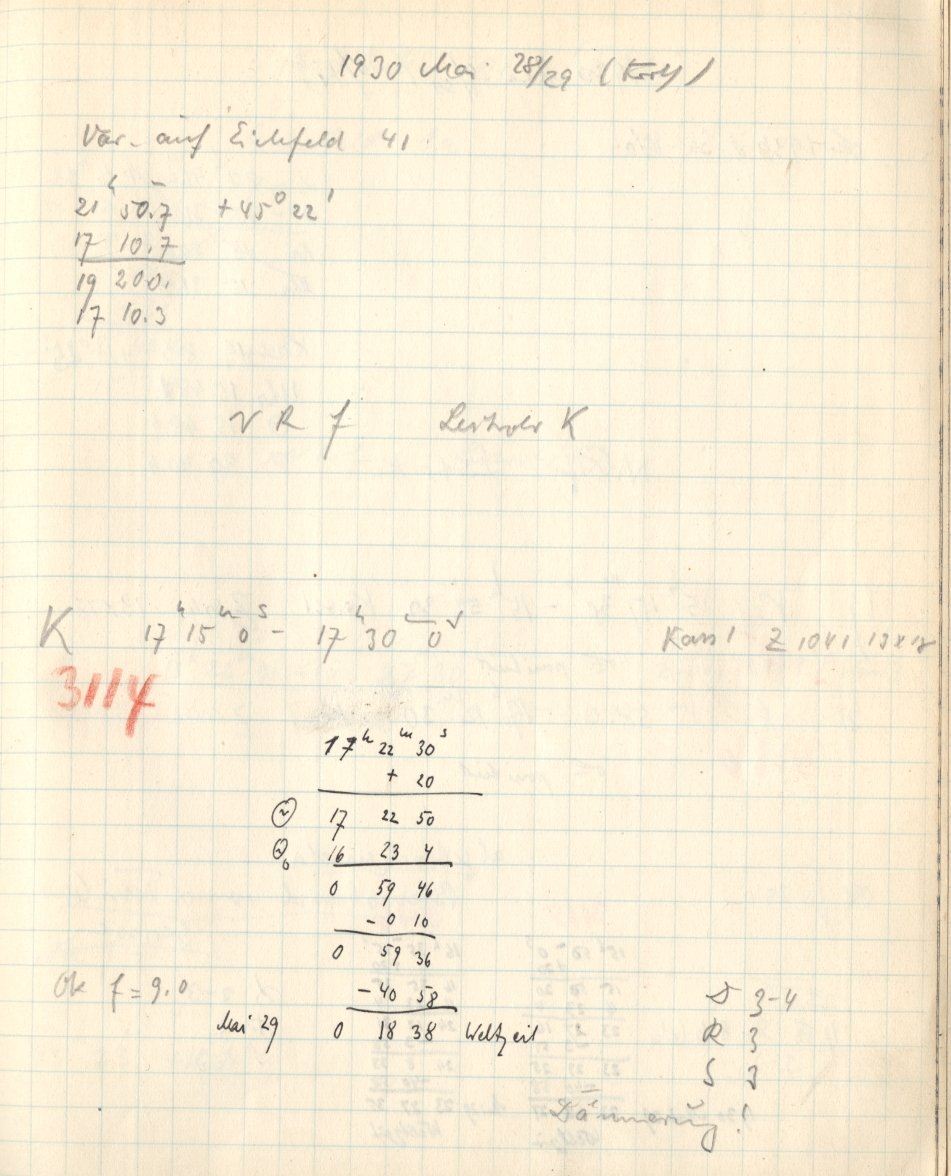 1930 Mai 28/29
Var. auf Eichfeld 41
21ʰ 50.7ᵐ +45° 22'
17 10.7
19 200.
17 10.3
R f Leitrohr K
K 17ʰ 15ᵐ 0ˢ - 17ʰ 30ᵐ 0ˢ
3114
17ʰ 22ᵐ 30ˢ
+ 20
17 22 50
Θ₀ 16 23 4
0 59 46
- 0 10
0 59 36
Ok f = 9.0 - 40 58
Mai 29 0 18 38 Weltzeit
3-4
R 3
S 3
Dämmerung!